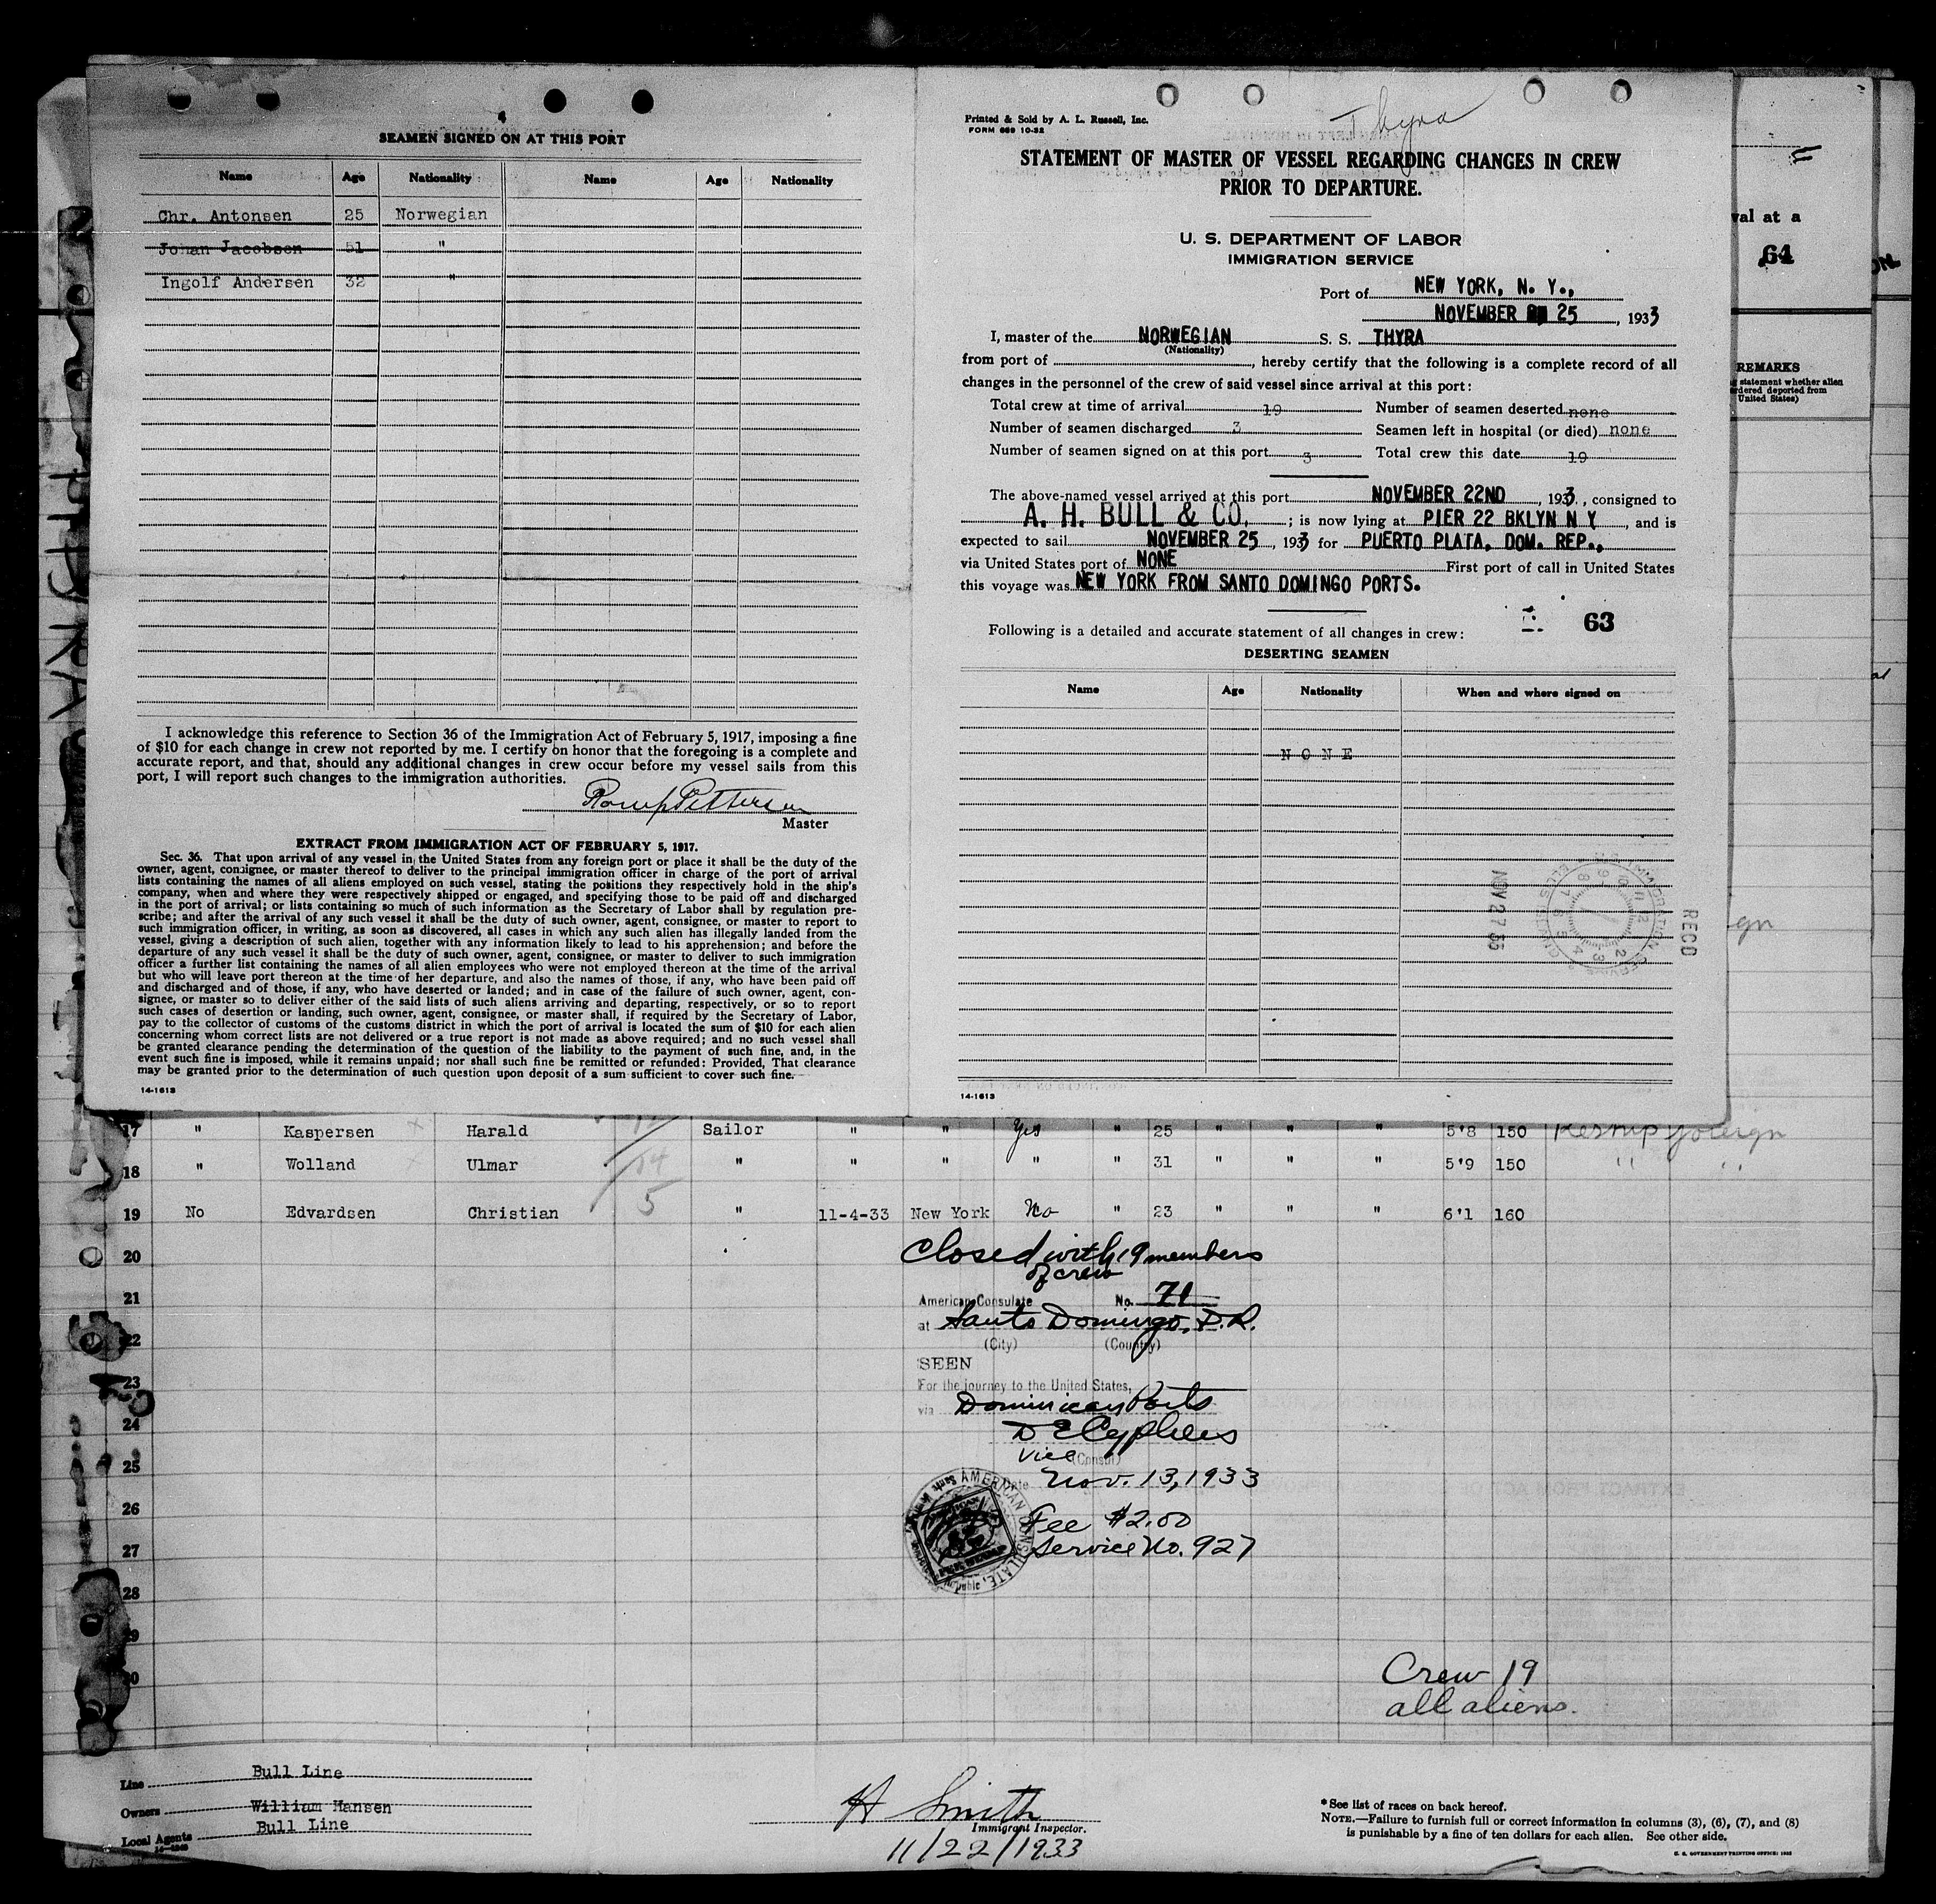 SEAMEN SIGNED ON AT THIS PORT
Name Age Nationality Name Age Nationality
Chr. Antonsen 25 Norwegian
Johan Jacobsen 51 "
Ingolf Andersen 32 "
I acknowledge this reference to Section 36 of the Immigration Act of February 5, 1917, imposing a fine
of $10 for each change in crew not reported by me. I certify on honor that the foregoing is a complete and
accurate report, and that, should any additional changes in crew occur before my vessel sails from this
port, I will report such changes to the immigration authorities.
Master
EXTRACT FROM IMMIGRATION ACT OF FEBRUARY 5, 1917.
Sec. 36. That upon arrival of any vessel in the United States from any foreign port or place it shall be the duty of the
owner, agent, consignee, or master thereof to deliver to the principal immigration officer in charge of the port of arrival
lists containing the names of all aliens employed on such vessel, stating the positions they respectively hold in the ship's
company, when and where they were respectively shipped or engaged, and specifying those to be paid off and discharged
in the port of arrival; or lists containing so much of such information as the Secretary of Labor shall by regulation pre-
scribe; and after the arrival of any such vessel it shall be the duty of such owner, agent, consignee, or master to report to
such immigration officer, in writing, as soon as discovered, all cases in which any such alien has illegally landed from the
vessel, giving a description of such alien, together with any information likely to lead to his apprehension; and before the
departure of any such vessel it shall be the duty of such owner, agent, consignee, or master to deliver to such immigration
officer a further list containing the names of all alien employees who were not employed thereon at the time of the arrival
but who will leave port thereon at the time of her departure, and also the names of those, if any, who have been paid off
and discharged and of those, if any, who have deserted or landed; and in case of the failure of such owner, agent, con-
signee, or master so to deliver either of the said lists of such aliens arriving and departing, respectively, or so to report
such cases of desertion or landing, such owner, agent, consignee, or master shall, if required by the Secretary of Labor,
pay to the collector of customs of the customs district in which the port of arrival is located the sum of $10 for each alien
concerning whom correct lists are not delivered or a true report is not made as above required; and no such vessel shall
be granted clearance pending the determination of the question of the liability to the payment of such fine, and, in the
event such fine is imposed, while it remains unpaid; nor shall such fine be remitted or refunded: Provided, That clearance
may be granted prior to the determination of such question upon deposit of a sum sufficient to cover such fine.
14-1613
Printed & Sold by A. L. Russell, Inc.
FORM 669 10-32
Thyra
STATEMENT OF MASTER OF VESSEL REGARDING CHANGES IN CREW
PRIOR TO DEPARTURE.
U. S. DEPARTMENT OF LABOR
IMMIGRATION SERVICE
Port of NEW YORK, N. Y.,
NOVEMBER 25, 1933
I, master of the NORWEGIAN S. S. THYRA
(Nationality)
from port of , hereby certify that the following is a complete record of all
changes in the personnel of the crew of said vessel since arrival at this port:
Total crew at time of arrival 19 Number of seamen deserted none
Number of seamen discharged 3 Seamen left in hospital (or died) none
Number of seamen signed on at this port 3 Total crew this date 19
The above-named vessel arrived at this port NOVEMBER 22ND, 1933, consigned to
A. H. BULL & CO. ; is now lying at PIER 22 BKLYN N Y, and is
expected to sail NOVEMBER 25, 1933 for PUERTO PLATA, DOM. REP.,
via United States port of NONE First port of call in United States
this voyage was NEW YORK FROM SANTO DOMINGO PORTS.
63
Following is a detailed and accurate statement of all changes in crew:
DESERTING SEAMEN
Name Age Nationality When and where signed on
N O N E
RECD
NOV 27
14-1613
val at a
64
REMARKS
statement whether alien
ordered deported from
United States)
17 " Kaspersen Harald Sailor " " Yes " 25 " " " 5'8 150 Reship foreign
18 " Wolland Ulmar 14 " " " " " 31 " " " 5'9 150 " "
19 No Edvardsen Christian 5 " 11-4-33 New York No " 23 " " " 6'1 160
20
21
22
23
24
25
26
27
28
29
30
Closed with 19 members
of crew
American Consulate No. 71
at Santo Domingo, D.R.
(City) (Country)
SEEN
For the journey to the United States,
via Dominican Ports
Vice (Consul)
Date Nov. 13, 1933
AMERICAN CONSULATE,
Fee $2.00
Service No. 927
Crew 19
all aliens.
Line Bull Line
Owners William Hansen
Local Agents Bull Line
H Smith
Immigrant Inspector.
11/22/1933
* See list of races on back hereof.
NOTE.—Failure to furnish full or correct information in columns (3), (6), (7), and (8)
is punishable by a fine of ten dollars for each alien. See other side.
U. S. GOVERNMENT PRINTING OFFICE: 1932